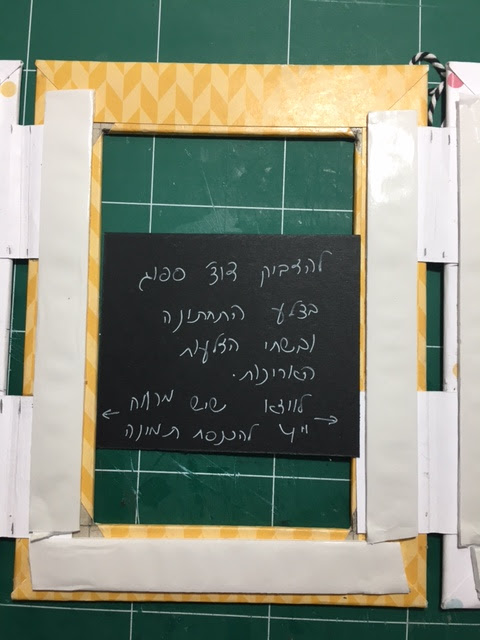 להדביק דו"צ ספוג
בצלע התחתונה
ובשתי הצלעות
הארוכות.
← לוודא שיש מרווח →
להכנסת תמונה